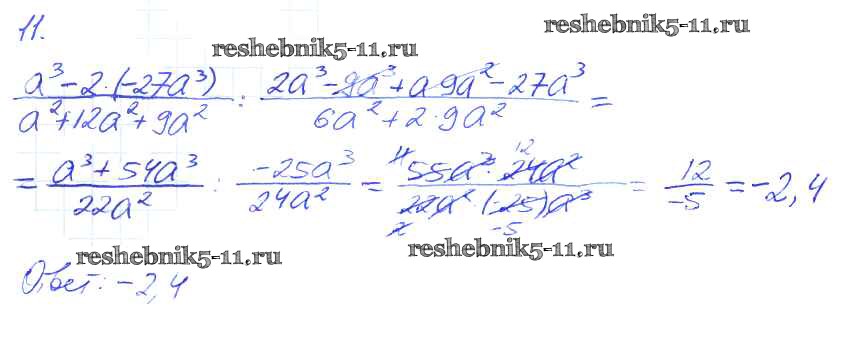 11.
reshebnik5-11.ru
reshebnik5-11.ru
a³-2·(-27a³) / a²+12a²+9a² : 2a³-9a³+a·9a²-27a³ / 6a²+2·9a² =
= a³+54a³ / 22a² : -25a³ / 24a² = 55a³·24a² / 22a²·(-25)a³ = 12 / -5 = -2,4
reshebnik5-11.ru
reshebnik5-11.ru
Ответ: -2,4